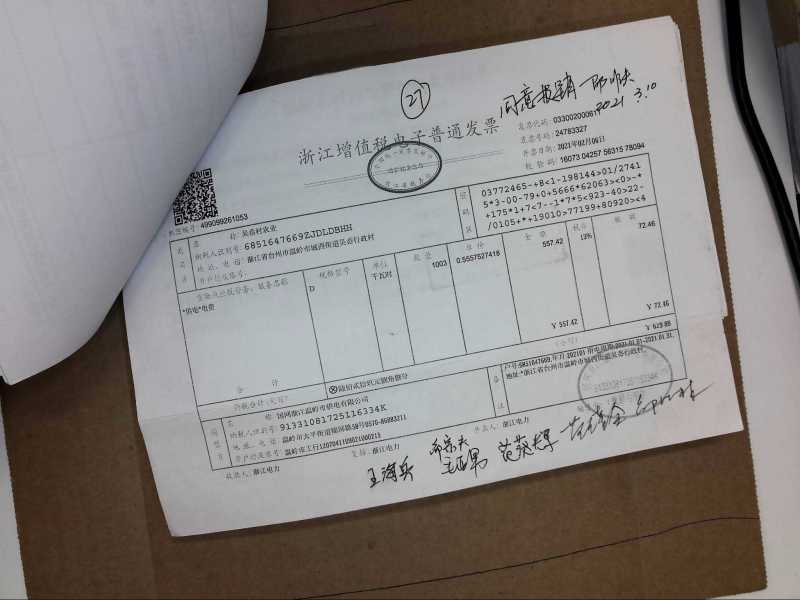 27
同意报销
2021 3.10
浙江增值税电子普通发票
发票代码: 03300200061
发票号码: 24783327
开票日期: 2021年02月06日
校验码: 16073 04257 56315 78094
机器编号: 499099261053
购买方
名称: 吴岙村农业
纳税人识别号: 6851647669ZJDLDBHH
地址、电话: 浙江省台州市温岭市城西街道吴岙行政村
开户行及账号:
密码区
03772465-+8<1-198144>01/2741
5*3-00-79+0+5666*62063><0>-*
+175*1+7<7--1*7*5<923-40>22-
/0105+*+19010>77199+80920><4
货物或应税劳务、服务名称 规格型号 单位 数量 单价 金额 税率 税额
*供电*电费 D 千瓦时 1003 0.5557527418 557.42 13% 72.46
合计 ¥557.42 ¥72.46
价税合计(大写) ⊗陆佰贰拾玖元捌角捌分 (小写) ¥629.88
销售方
名称: 国网浙江温岭市供电有限公司
纳税人识别号: 91331081725116334K
地址、电话: 温岭市太平街道锦屏路59号0576-86083211
开户行及账号: 温岭市工行1207041109021000213
备注
户号:6851647669,年月:202101 用电周期:2021.01.01-2021.01.31,
地址:*浙江省台州市温岭市城西街道吴岙行政村
收款人: 浙江电力 复核: 浙江电力 开票人: 浙江电力